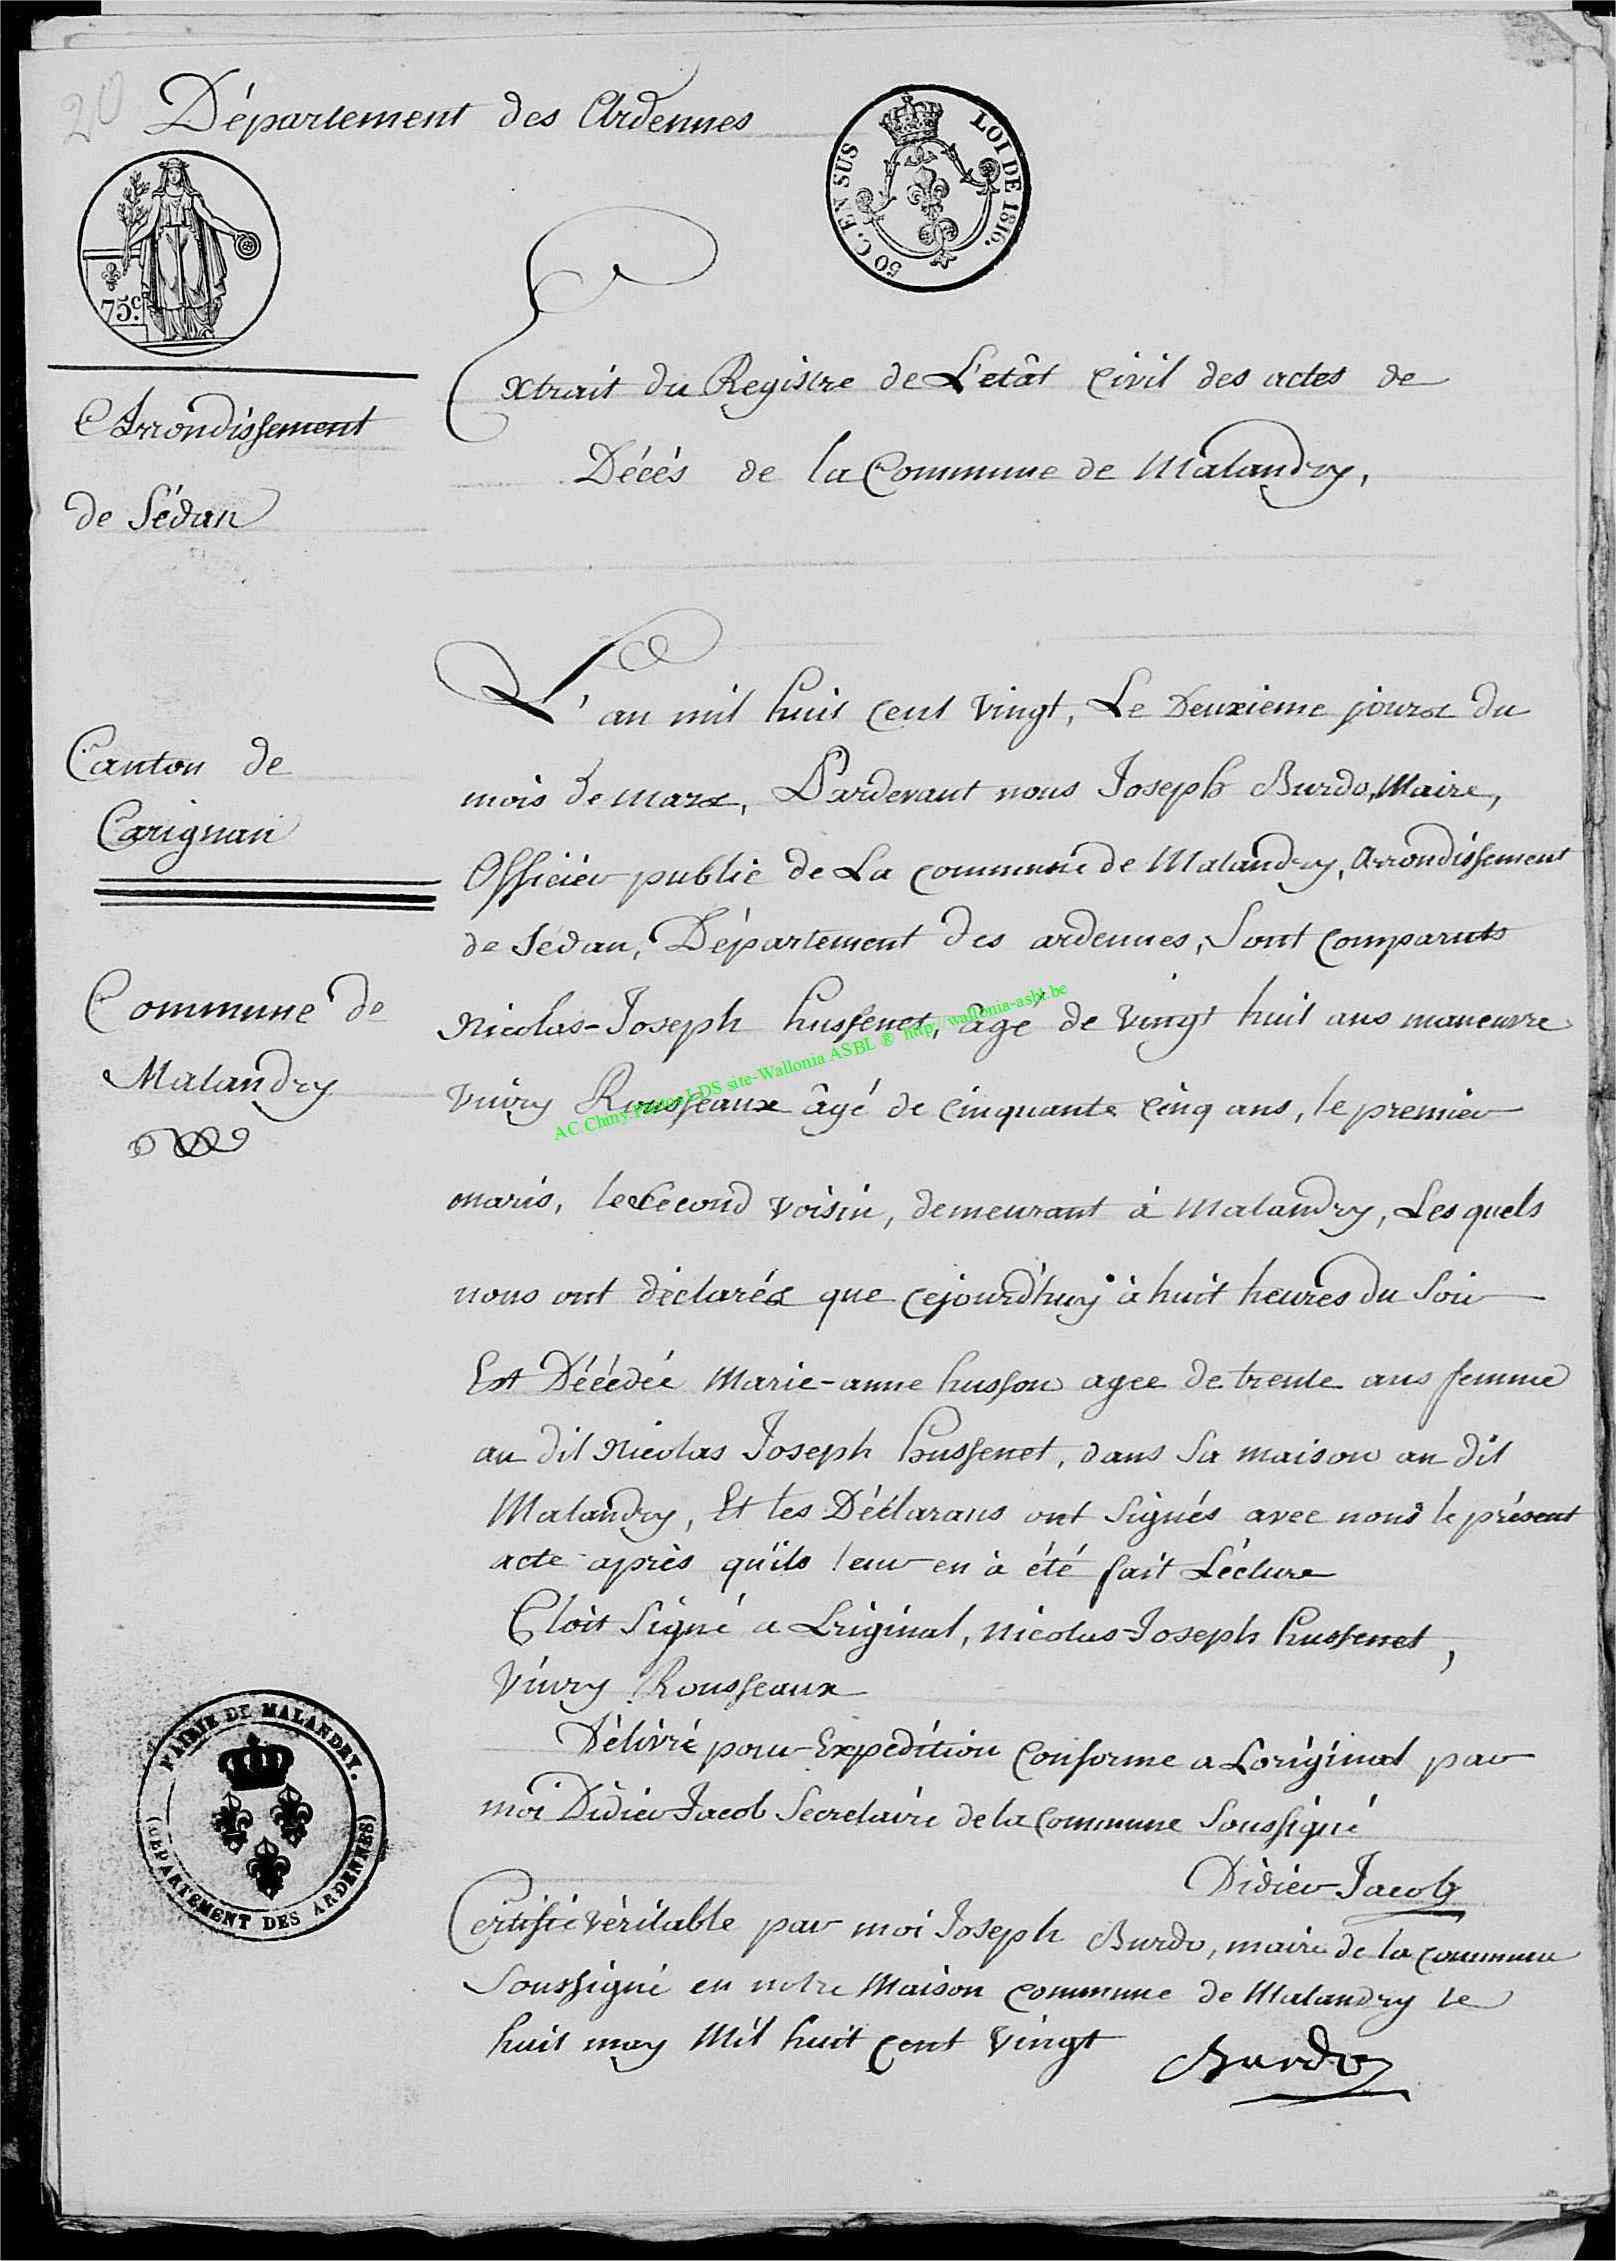 20
Département des Ardennes
75c.
50 C. EN SUS
LOI DE 1816.
Arrondissement
de Sédan
Extrait du Registre de L'etât Civil des actes de
Décés de la Commune de Malandry,
Canton de
Carignan
Commune de
Malandry
L'an mil huit cent vingt, Le Deuxieme jour du
mois de mars, Pardevant nous Joseph Burdo, Maire,
Officier public de La commune de Malandry, Arrondissement
de Sédan, Département des ardennes, Sont comparuts
Nicolas-Joseph hussenet, âgé de vingt huit ans maneuvre
Vivry Rousseaux âgé de cinquante cinq ans, le premier
maris, le Second voisin, demeurant à Malandry, Les quels
nous ont déclarés que cejourd'huy à huit heures du Soir
Est Décédée Marie-anne husson agee de trente ans femme
au dit Nicolas Joseph hussenet, dans Sa maison au dit
Malandry, Et les Déclarans ont Signés avec nous le présent
acte après qu'ils leur en à été fait Lécture
Etoit Signé a Lriginal, Nicolas-Joseph hussenet,
Vivry Rousseaux
Délivré pour Expédition Conforme a Loriginal par
moi Didier Jacob Secretaire de la Commune Soussigné
Didier Jacob
Certifié véritable par moi Joseph Burdo, maire de la commune
Soussigné en notre Maison commune de Malandry le
huit may Mil huit cent vingt
Burdo
MAIRIE DE MALANDRY.
(DEPARTEMENT DES ARDENNES)
AC Chiny LDS site-Wallonia ASBL ® http://wallonia-asbl.be